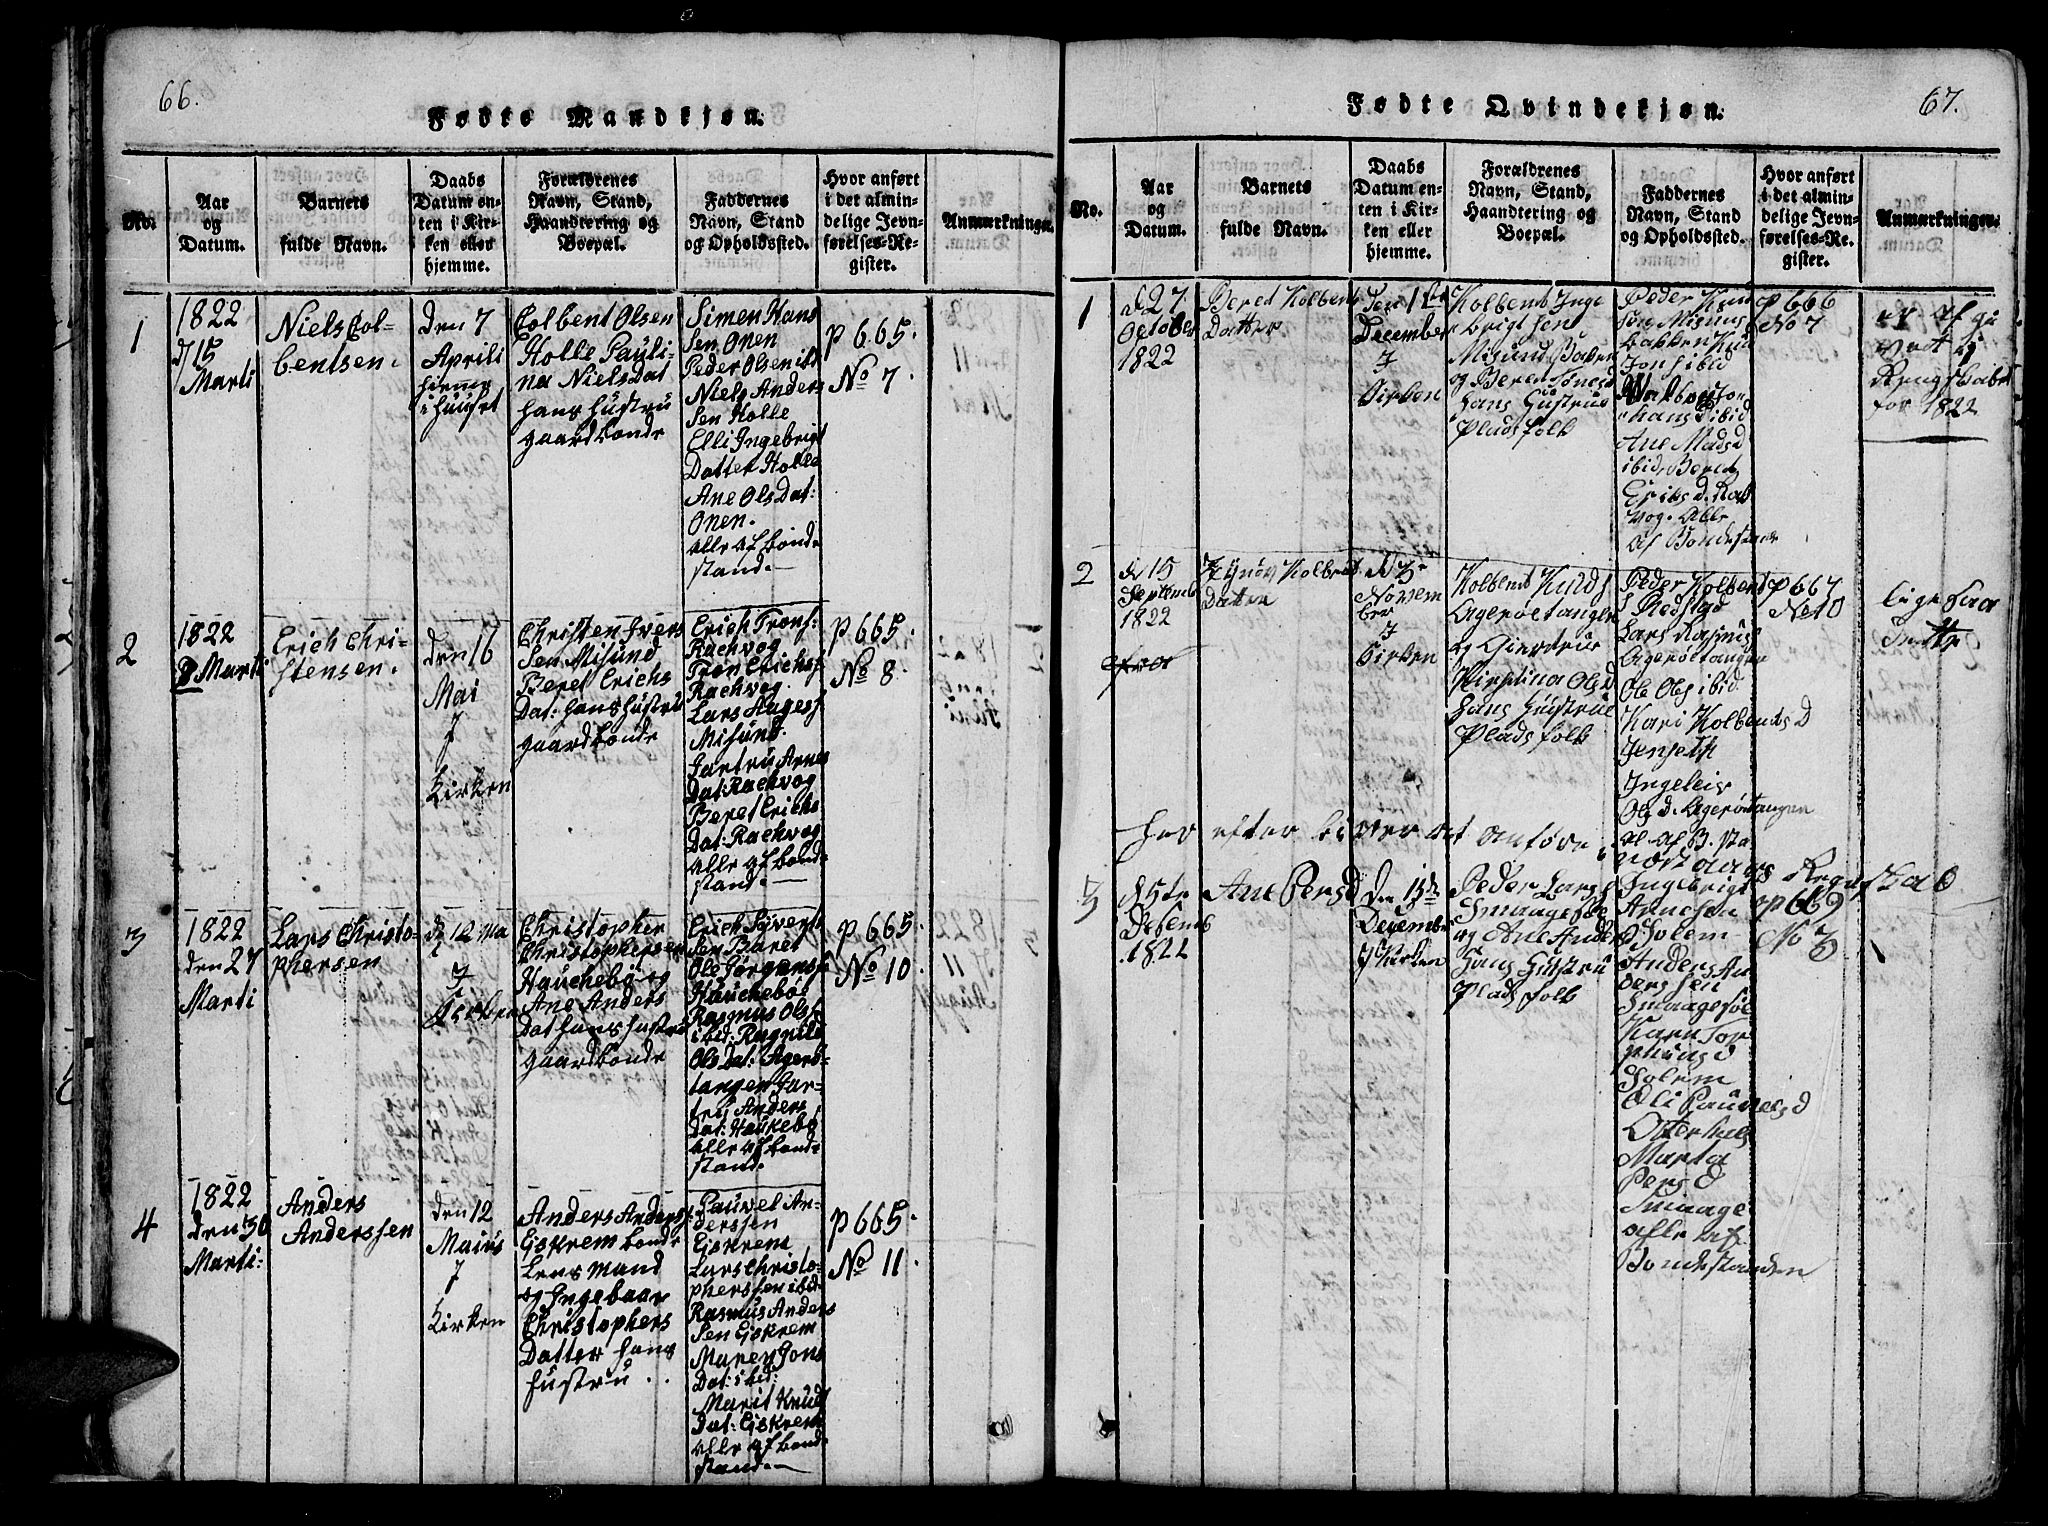 66.
Fødte Mandkjøn.
No.
Aar
og
Datum.
Barnets
fulde Navn.
Daabs
Datum en-
ten i Kir-
ken eller
hjemme.
Forældrenes
Navn, Stand,
Haandtering og
Boepæl.
Faddernes
Navn, Stand
og Opholdssted.
Hvor anført
i det almin-
delige Jevn-
førelses-Re-
gister.
Anmærkninger.
1
1822
d/15
Marti
Niels Col-
bentsen.
den 7
Aprili
hiemme
i huuset
Colbent Olsen
Holle Pauli-
na Niels Dat
hans hustru
gaardbonde
Simen Hans
Sen Onen
Peder Olsen ibd
Niels Anders
Sen Holle
Elli Ingebrigt
Datter Holle
Ane Ols Dat:
Onen.
alle af bonde
stand.
p 665.
No 7.
2
1822
8 Marti
Erich Chri-
stensen.
den 16
Mai
J
Kirken
Christen Ivers
Sen Misund
Beret Erichs
Dat: hans hustru
gaardbonde
Erich Trons:
Rachvog
Tron Erichs:
Rachvog
Lars Aages:
Misund.
Gartru Arnes
Dat: Rachvog
Beret Erichs
Dat: Rachvog
alle af bond-
stand.
p 665.
No 8.
3
1822
den 27
Marti
Lars Christo-
phersen
d 12 Ma
J
Kirken
Christopher
Christophersen
Hauchebø og
Ane Anders
Dat hans hustru
gaardbonde
Erich Siverts
Sen Baret
Ole Jørgens:
Hauchebøe
Rasmus Ols:
ibid: Ragnild
Ols Dat: Agerø-
tangen Gar-
tru Anders
Dat: Haukebø
alle af bonde
stand.
p 665.
No 10.
4
1822
den 30
Marti:
Anders
Anderssen
den 12
Maius
J
Kirken
Anders Anders:
Eiskrem bonde
Lens mand
og Ingebaar
Christophers
Datter hans
hustru.
Pauvel An-
derssen
Eiskrem
Lars Christo-
pherssen ibd
Rasmus Anders
Sen Eiskrem
Maren Jons
Dat: ibid:
Marit Knuds
Dat: Eiskrem
alle af bond-
stand.
p 665.
No 11.
67.
Fødte Qvindekjøn.
No.
Aar
og
Datum.
Barnets
fulde Navn.
Daabs
Datum en-
ten i Kir-
ken eller
hjemme.
Forældrenes
Navn, Stand,
Haandtering og
Boepæl.
Faddernes
Navn, Stand
og Opholdssted.
Hvor anført
i det almin-
delige Jevn-
førelses-Re-
gister.
Anmærkninger.
1
d 27
October
1822
Beret Kolbents
Datter
Den 1ste
December
J
Kirken
Kolbent Inge
brigtsen
Misund
og Beret
Hans Hustrue
Pladsfolk
Peder Knud
Sen Misund
Bakken Knud
Jons ibid
ibid
Ane Madsd
ibid, Beret
Eriks d. Rak
vog. Alle
Af Bondestand
p 666
No 7
er af
Regnskabet
for 1822
2
d 15
Septemb
1822
Synøv Kolbents
Datter
d 3
Novem
ber
J
Kirken
Kolbent Knuds
Agerøetangen
og Gierdrue
Olsd
Hans Hustrue
Pladsfolk
Peder Kolbent
S Redstad
Lars Rasmus
Agerøetangen
Ole Ols ibid
Kari Kolbentsd
Jenset
Ingeleis
Ols d. Agerøtangen
al. af B. sta
p 667
No 10
lige saa
her efter bliver at anføre i vort aars Regnskab
3
d 5te
Desemb
1822
Ane Persd
Den 15de
December
J Kirken
Peder Lars
Smaagesøe
og Ane Anders
Hans Hustru
Pladsfolk
Ingebrigt
Arnesen
Solem
Anders An
derssen
Smaagesøe
Karn Tor
Solem
Oli Paulsd
Marta
Persd
Smaage
alle af
Bondestanden
p 669
No 3